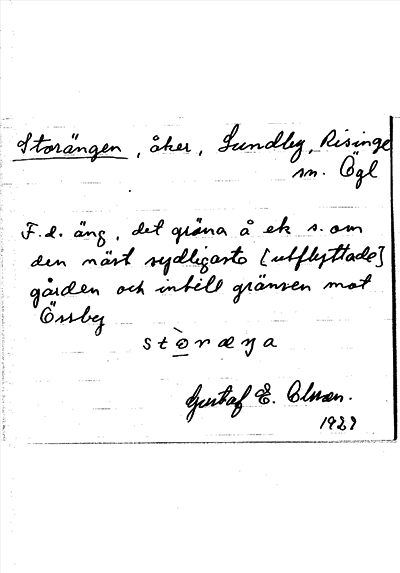 Storängen, åker, Sundby, Risinge
sn. Ögl
F.d. äng, det gröna å ek s. om
den näst sydligaste [utflyttade]
gården och intill gränsen mot
Össby
Gustaf E. Olsson.